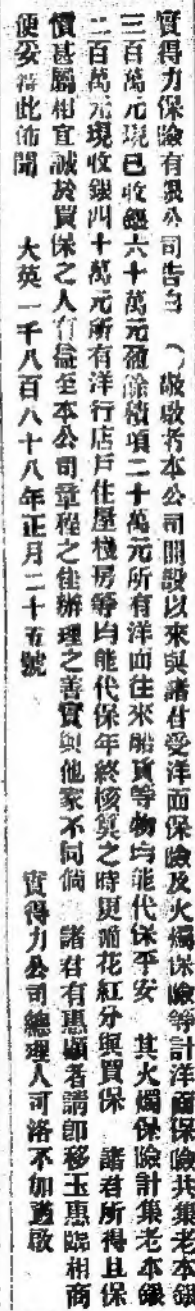 實得力保險有限公司告白　敬啟者本公司開設以來與諸君受洋面保險及火燭保險等計洋面保險共集老本銀
三百萬元現已收銀六十萬元盈餘積項二十萬元所有洋面往來船貨等物均能代保平安　其火燭保險計集老本銀
二百萬元現收銀四十萬元所有洋行店戶住屋棧房等均能代保年終核算之時更派花紅分與買保　諸君所得且保
價甚屬相宜誠於買保之人有益至本公司章程之佳辦理之善實與他家不同倘　諸君有惠顧者請即移玉惠臨相商
便妥特此佈聞　大英一千八百八十八年正月二十五號　實得力公司總理人可洛不加謹啟